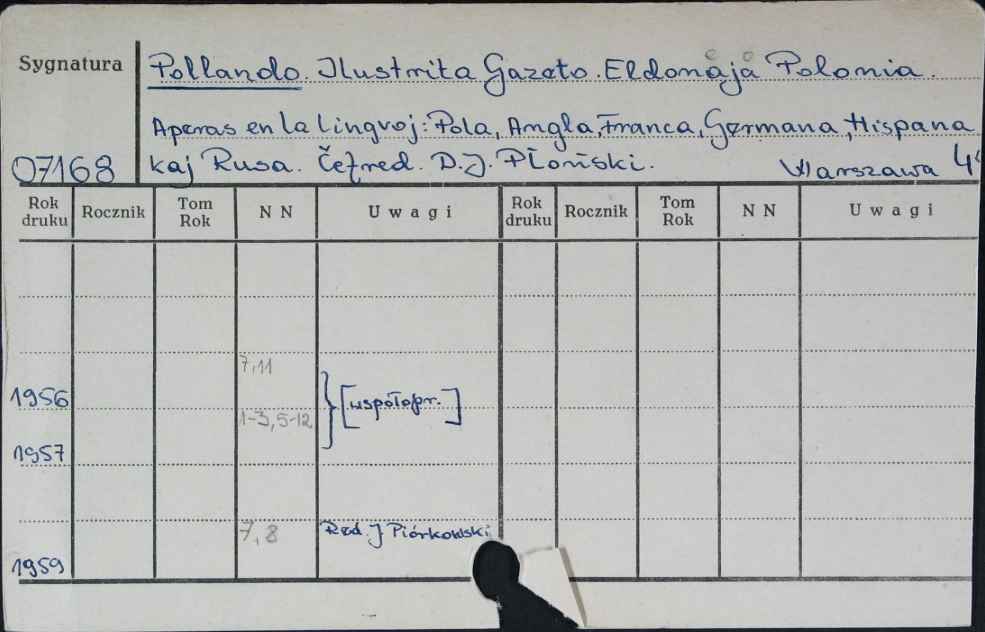 Sygnatura
Pollando. Ilustrita Gazeto. Eldonaja Polonia.
Aperas en la lingvoj: Pola, Angla, Franca, Germana, Hispana
07168 kaj Rusa. Ĉefred. D.J. Płoński. Warszawa
Rok druku Rocznik Tom Rok N N Uwagi Rok druku Rocznik Tom Rok N N Uwagi
7,11
1956
1-3,5-12 [współopr.]
1957
7,8 Red. J Piórkowski
1959